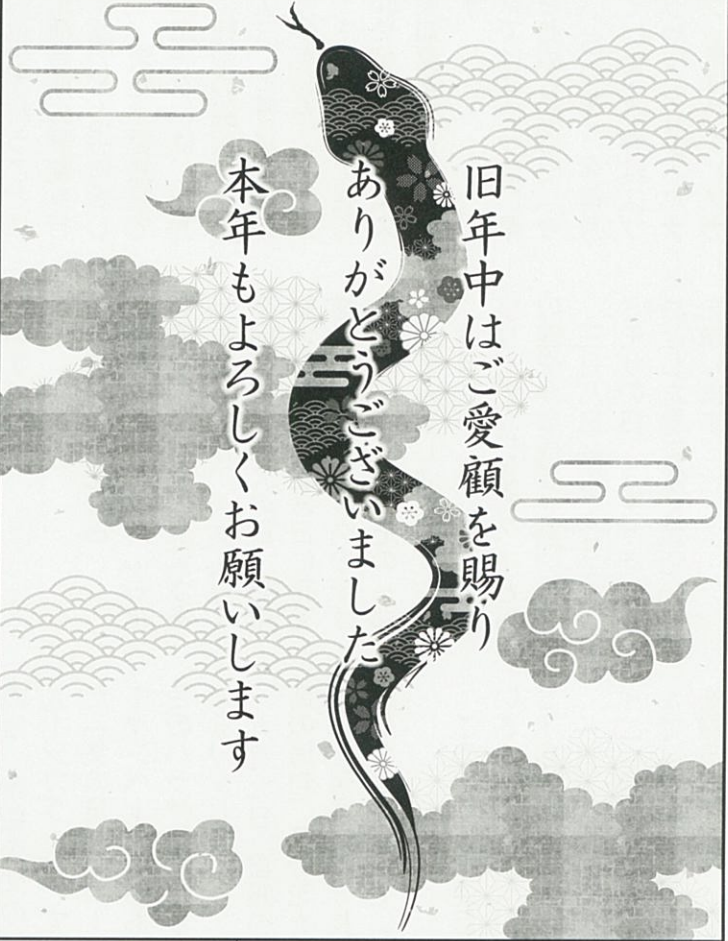 旧年中はご愛顧を賜り
ありがとうございました
本年もよろしくお願いします